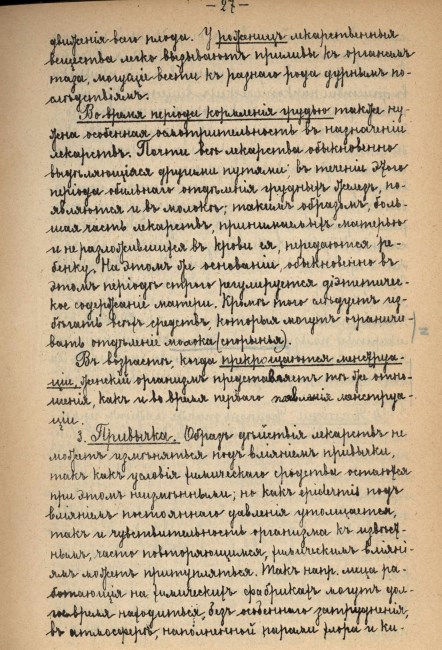 — 27 —
движенія всего плода. У рожаницъ лекарственныя
вещества легко вызываютъ приливы къ органамъ
таза, могущіе вести къ разнаго рода дурнымъ по-
слѣдствіямъ.
Во время періода кормленія грудью также ну-
жна особенная осмотрительность въ назначеніи
лекарствъ. Почти всѣ лекарства обыкновенно
выдѣляющіяся другими путями, въ теченіи этого
періода обильнаго отдѣленія грудныхъ железъ, по-
являются и въ молокѣ; такимъ образомъ, боль-
шая часть лекарствъ, принимаемыхъ матерью
и не разложившихся въ крови ея, передаются ре-
бенку. На этомъ же основаніи, обыкновенно въ
этомъ періодѣ строго регулируется діэтетичес-
кое содержаніе матери. Кромѣ того слѣдуетъ из-
бѣгать всѣхъ средствъ, которыя могутъ ограничи-
вать отдѣленіе молока
Въ возрастѣ, когда прекращаются менструа-
ціи, женскій организмъ представляетъ тѣ же отно-
шенія, какъ и во время перваго появленія менструа-
ціи.
3. Привычка. Образъ дѣйствія лекарствъ не
можетъ измѣняться подъ вліяніемъ привычки,
такъ какъ условія химическаго сродства остаются
при этомъ неизмѣнными; но какъ epidermis подъ
вліяніемъ постояннаго давленія утолщается,
такъ и чувствительность организма къ извѣст-
нымъ, часто повторяющимся, химическимъ вліяні-
ямъ можетъ притупляться. Такъ напр. лица ра-
ботающія на химическихъ фабрикахъ могутъ дол-
гое время находиться, безъ особеннаго затрудненія,
въ атмосферѣ, наполненной парами хлора и ки-